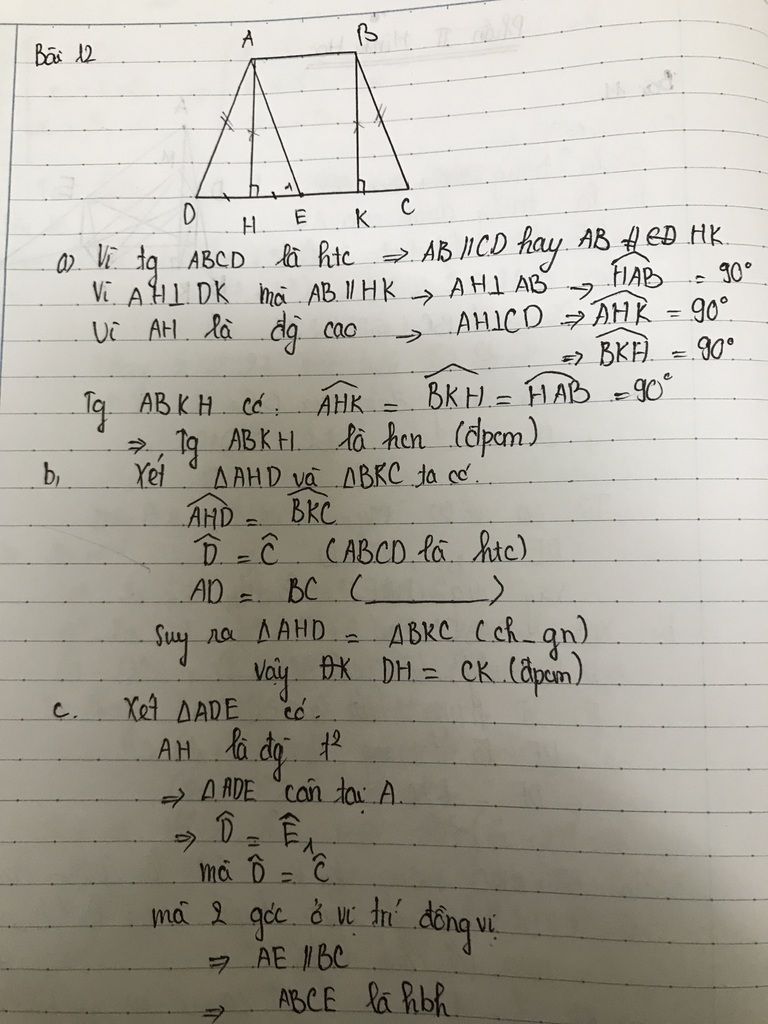 Bài 12
A B
1
D H E K C
a) Vì tg ABCD là htc ⇒ AB // CD hay AB // HK
Vì AH ⊥ DK mà AB // HK → AH ⊥ AB → HAB = 90°
Vì AH là đg cao → AH ⊥ CD ⇒ AHK = 90°
⇒ BKH = 90°
Tg ABKH có: AHK = BKH = HAB = 90°
⇒ Tg ABKH là hcn (đpcm)
b, Xét ΔAHD và ΔBKC ta có.
AHD = BKC
D̂ = Ĉ (ABCD là htc)
AD = BC (________)
Suy ra ΔAHD = ΔBKC (ch_gn)
Vậy DH = CK (đpcm)
c. Xét ΔADE có.
AH là đg t²
⇒ ΔADE cân tại A.
⇒ D̂ = Ê₁
mà D̂ = Ĉ
mà 2 góc ở vị trí đồng vị
⇒ AE // BC
⇒ ABCE là hbh